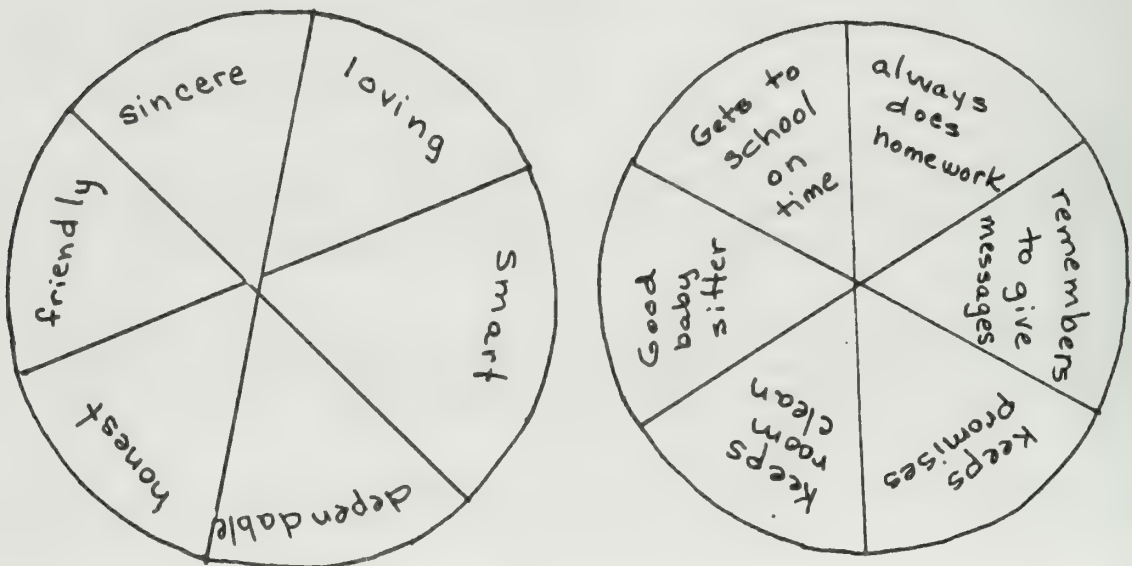 sincere
loving
smart
dependable
honest
friendly
Gets to
school
on
time
always
does
homework
remembers
to give
messages
Keeps
promises
Keeps
room
clean
Good
baby
sitter